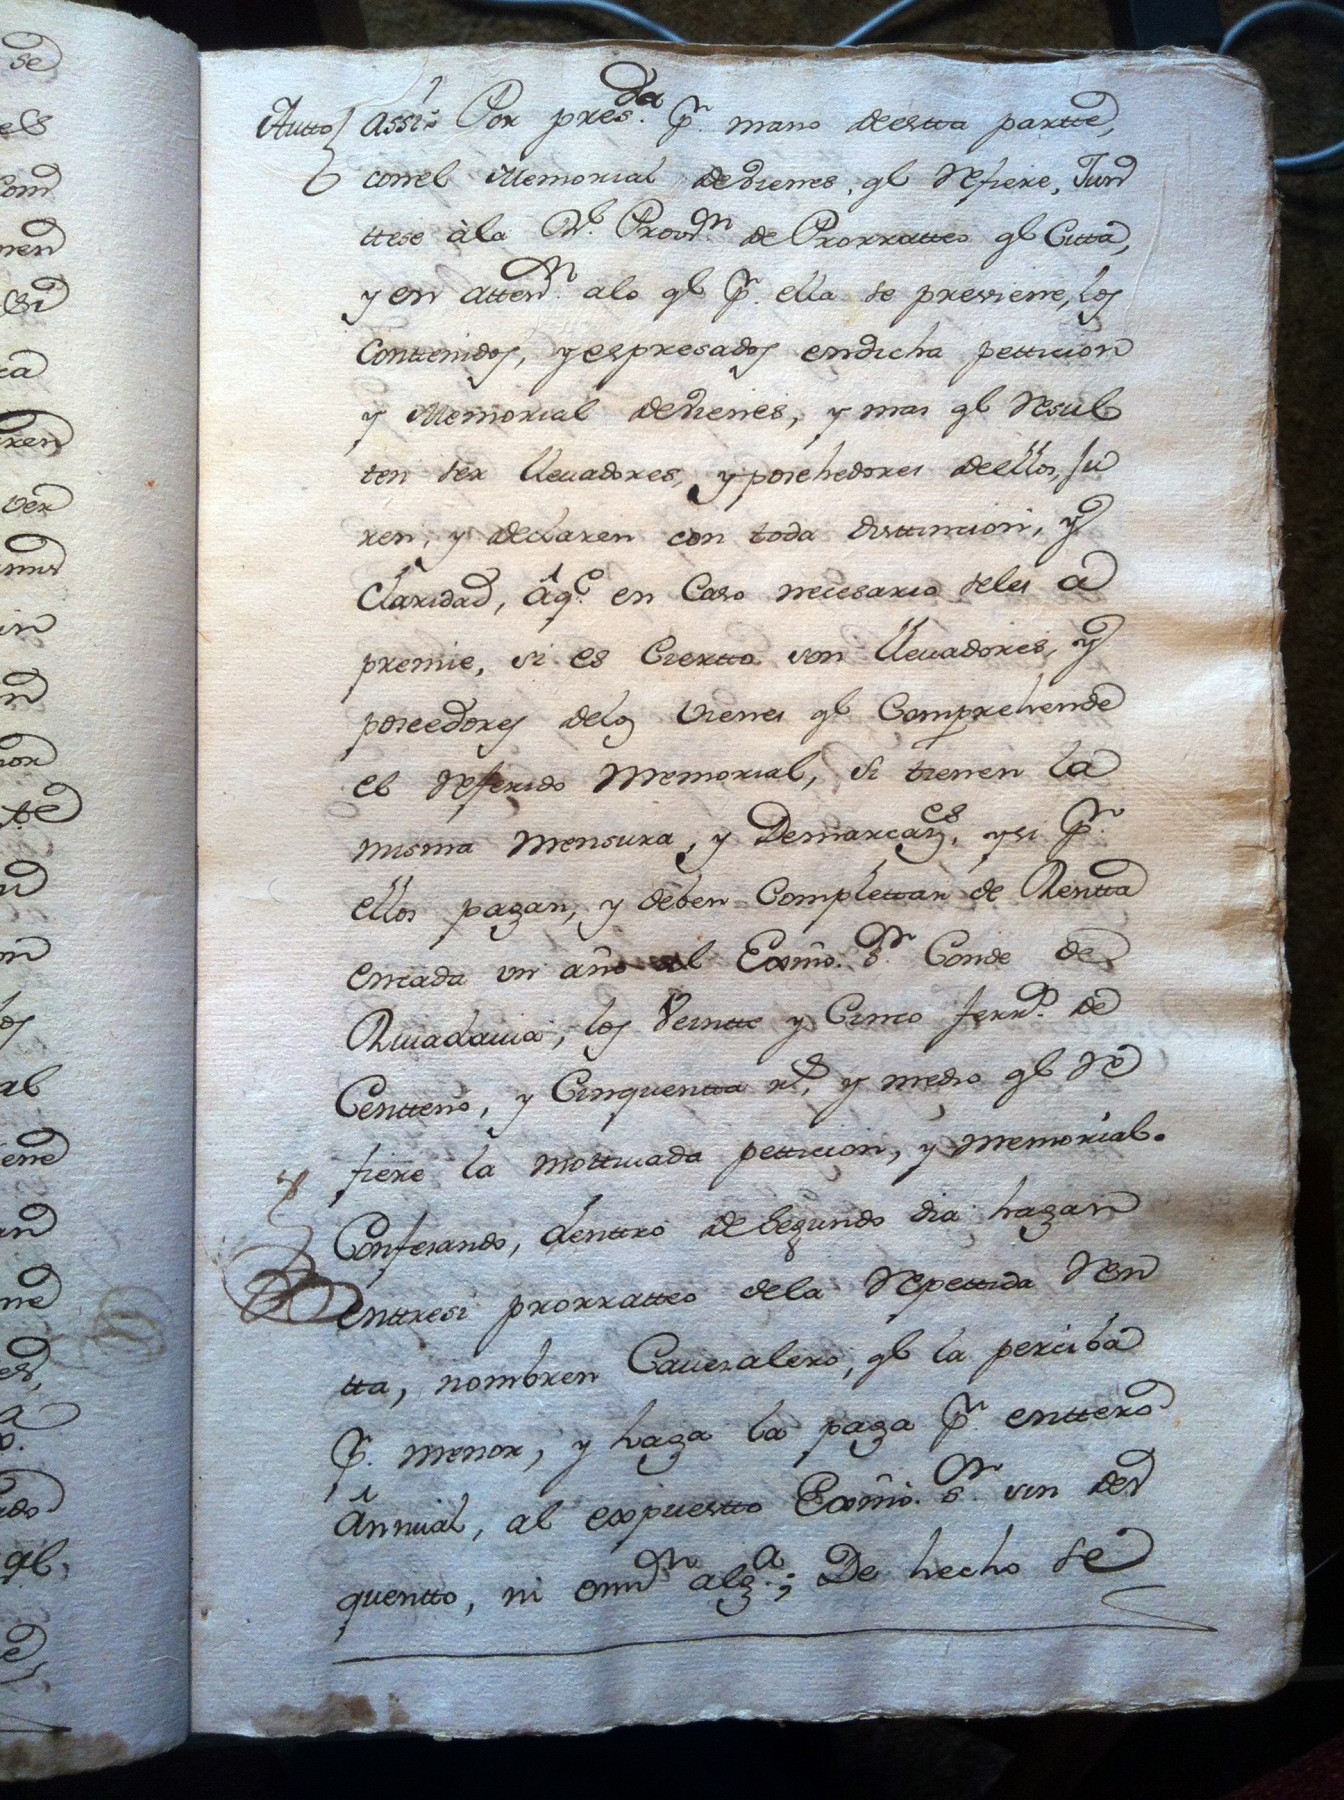 Autto Assi: Por pres.da Pr. mano desta partte,
con el Memorial de vienes, ql Refiere, Jun
ttese à la Rl. Provn. de Prorratteo ql Citta,
y en atten.n alo ql Pr. ella se previene, los
Conttenidos, y espresados en dicha petticion
y Memorial de vienes, y mas ql Resul
ten ser llevadores, y posehedores de ellos, Ju
ren, y declaren con toda disttincion, y
Claridad, â q.e en Caso necesario seles a
premie, si es Ciertto son llevadores, y
poseedores delos vienes ql Comprehende
el Referido Memorial, si tienen la
misma Mensura, y Demarcaz.es, y si Pr.
ellos pagan, y deben Complettar de Rentta
en cada un año al Exmô. Sr. Conde de
Rivadavia, los Veintte y Cinco ferrd.s de
Centteno, y Cinquentta rs, y medio ql Re
fiere la mottivada petticion, y Memorial.
Confesando, denttro de Segundo dia hagan
enttresi prorratteo dela Repettida Ren
tta, nombren Cavezalero, ql la perciba
Pr. menor, y haga la paga Pr. enttero
Ânnual, al expuestto Exmô. Sr. sin des
quentto, ni omn alg.a; De hecho se